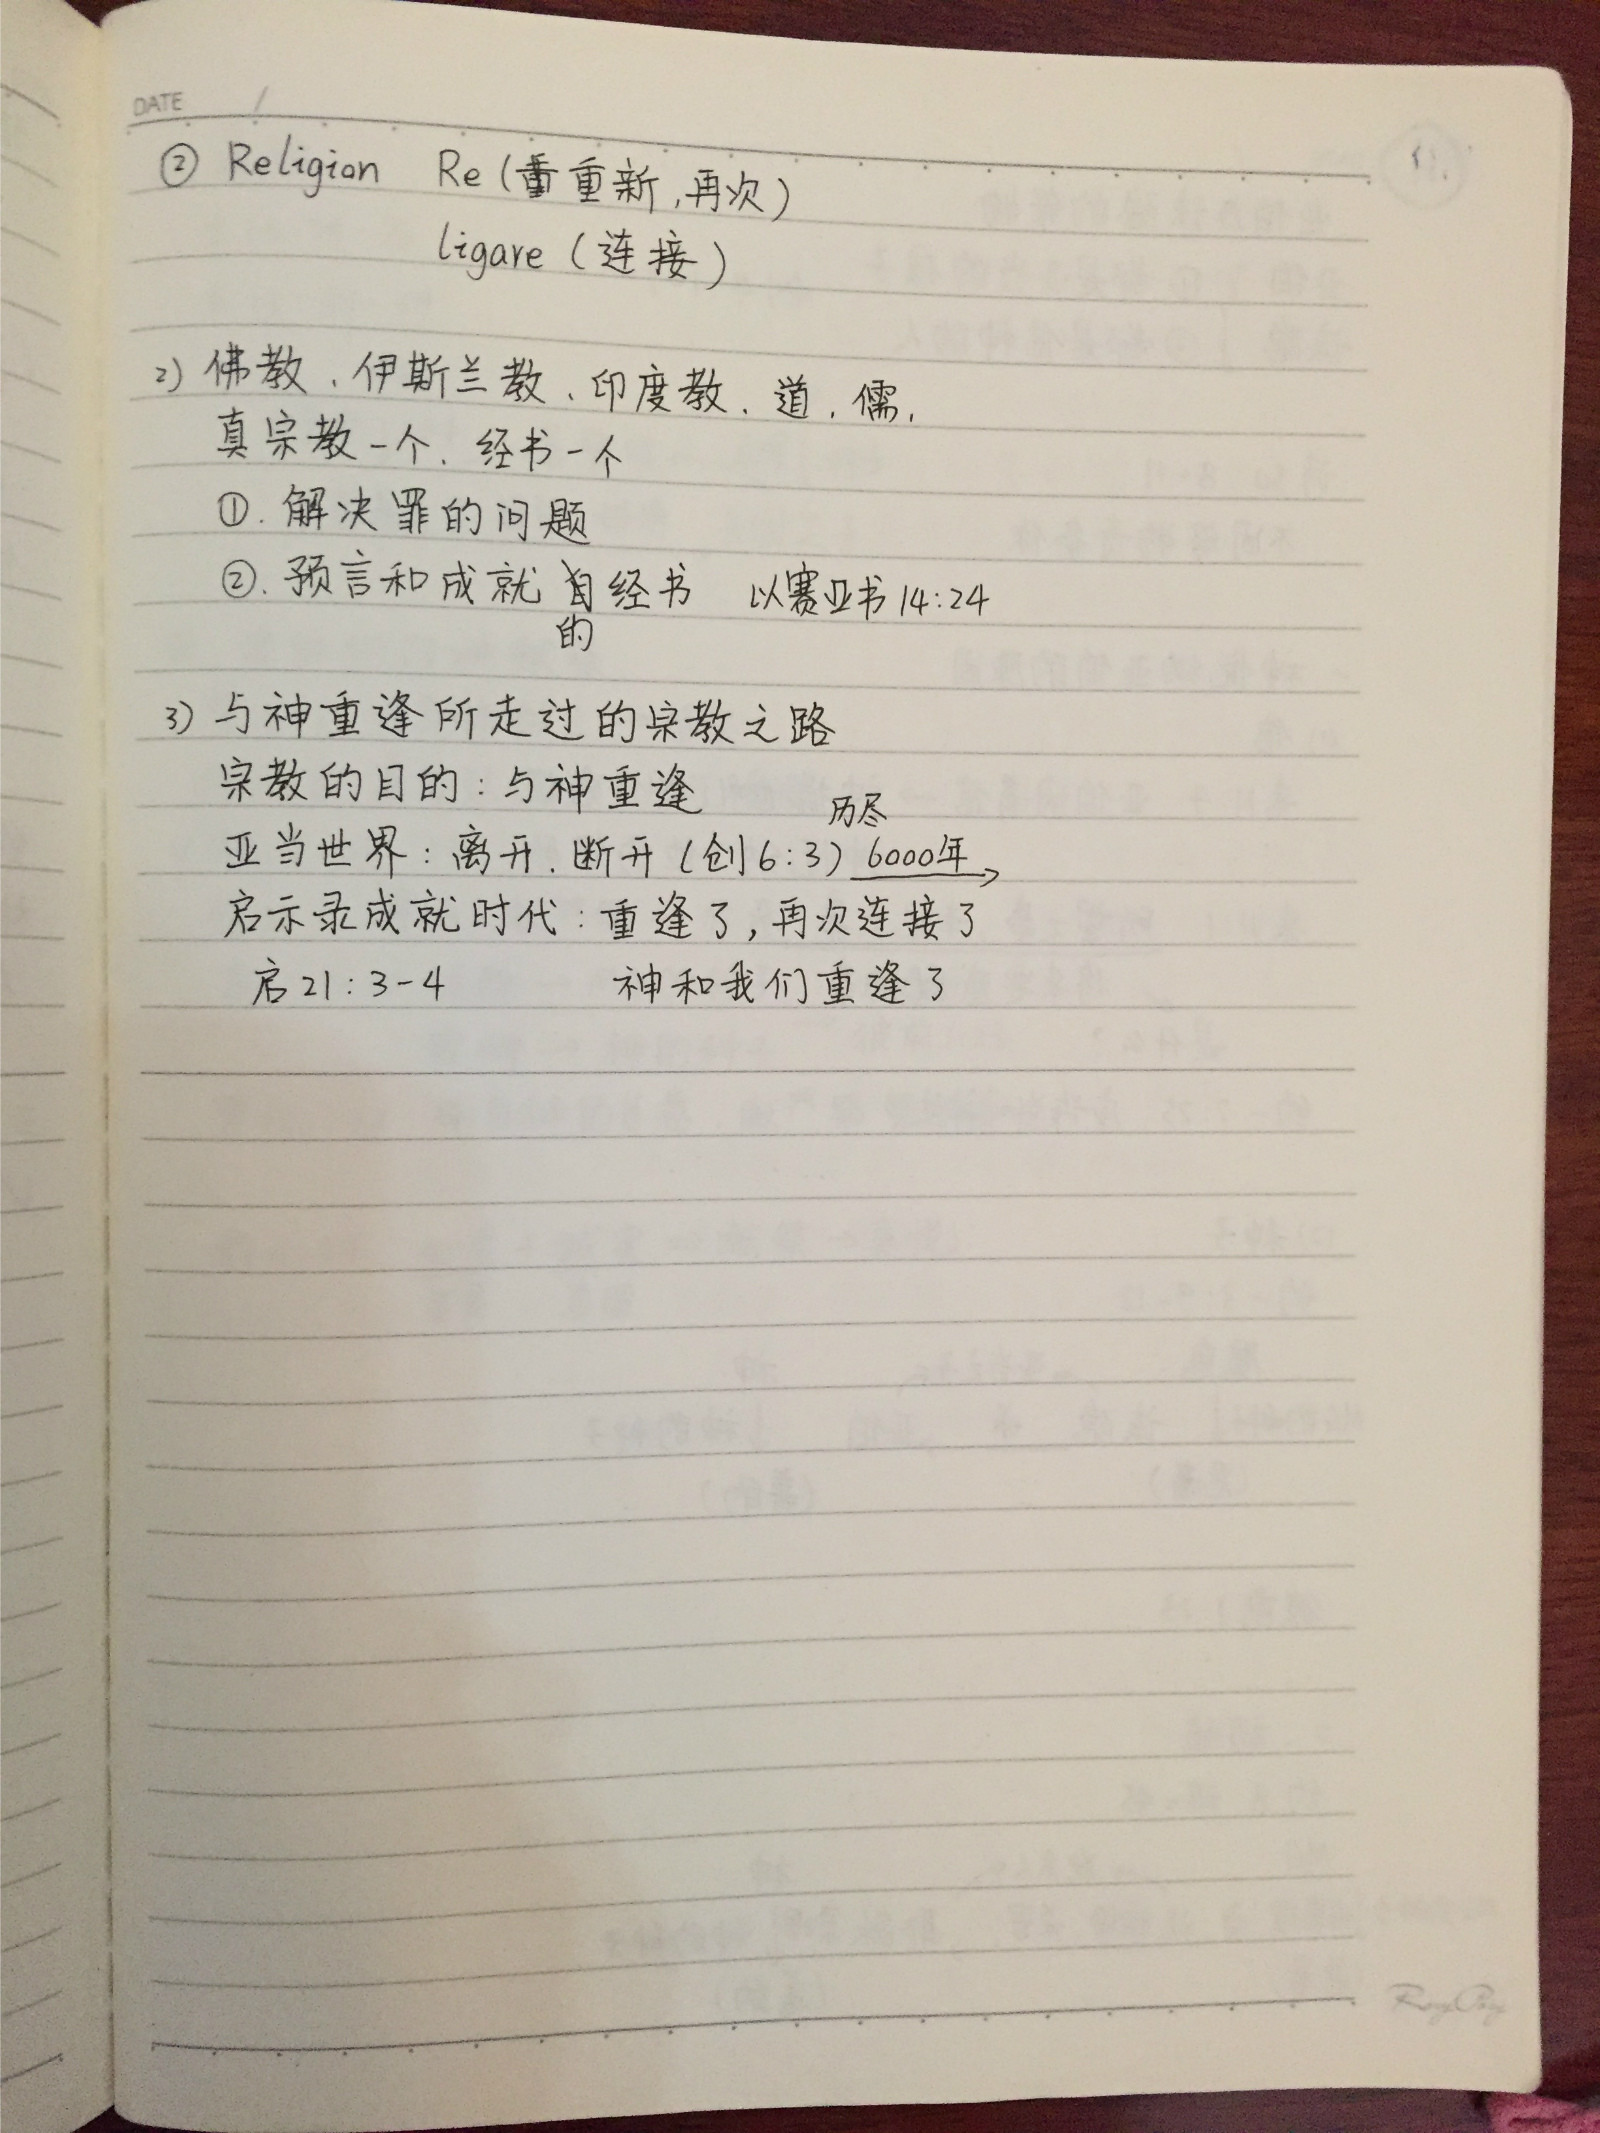 DATE /
② Religion Re(重新,再次)
ligare(连接)
2) 佛教、伊斯兰教、印度教、道、儒、
真宗教一个、经书一个
①. 解决罪的问题
②. 预言和成就的经书 以赛亚书14:24
3) 与神重逢所走过的宗教之路
宗教的目的:与神重逢
历尽
亚当世界:离开、断开(创6:3) 6000年→
启示录成就时代:重逢了,再次连接了
启21:3-4 神和我们重逢了